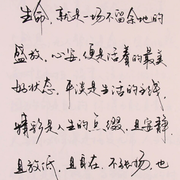 生命，就是一场不留余地的
盛放，心安，便是活着的最美
好状态，平淡是生活的主线
精彩是人生的点缀，且安静，
且放低，且自在，不张扬，也